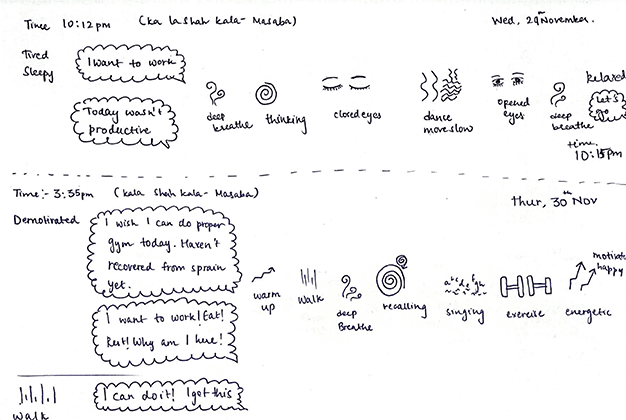 Time 10:12pm (Ka la Shah kala - Masaba) Wed, 29th November.
Tired
Sleepy
I want to work
Today wasn't
productive
deep
breathe
thinking
closed eyes
dance
move slow
opened
eyes
deep
breathe
Relaxed
Let's
go
time.
10:15pm
Time:- 3:35pm (kala Shah kala - Masaba) Thur, 30th Nov
Demotivated
I wish I can do proper
gym today. Haven't
recovered from sprain
yet.
I want to work! Eat!
Rest! Why am I here!
warm
up
walk
deep
Breathe
recalling
abcdefgh
singing
exercise
motivate
happy
energetic
walk
I can do it! I got this